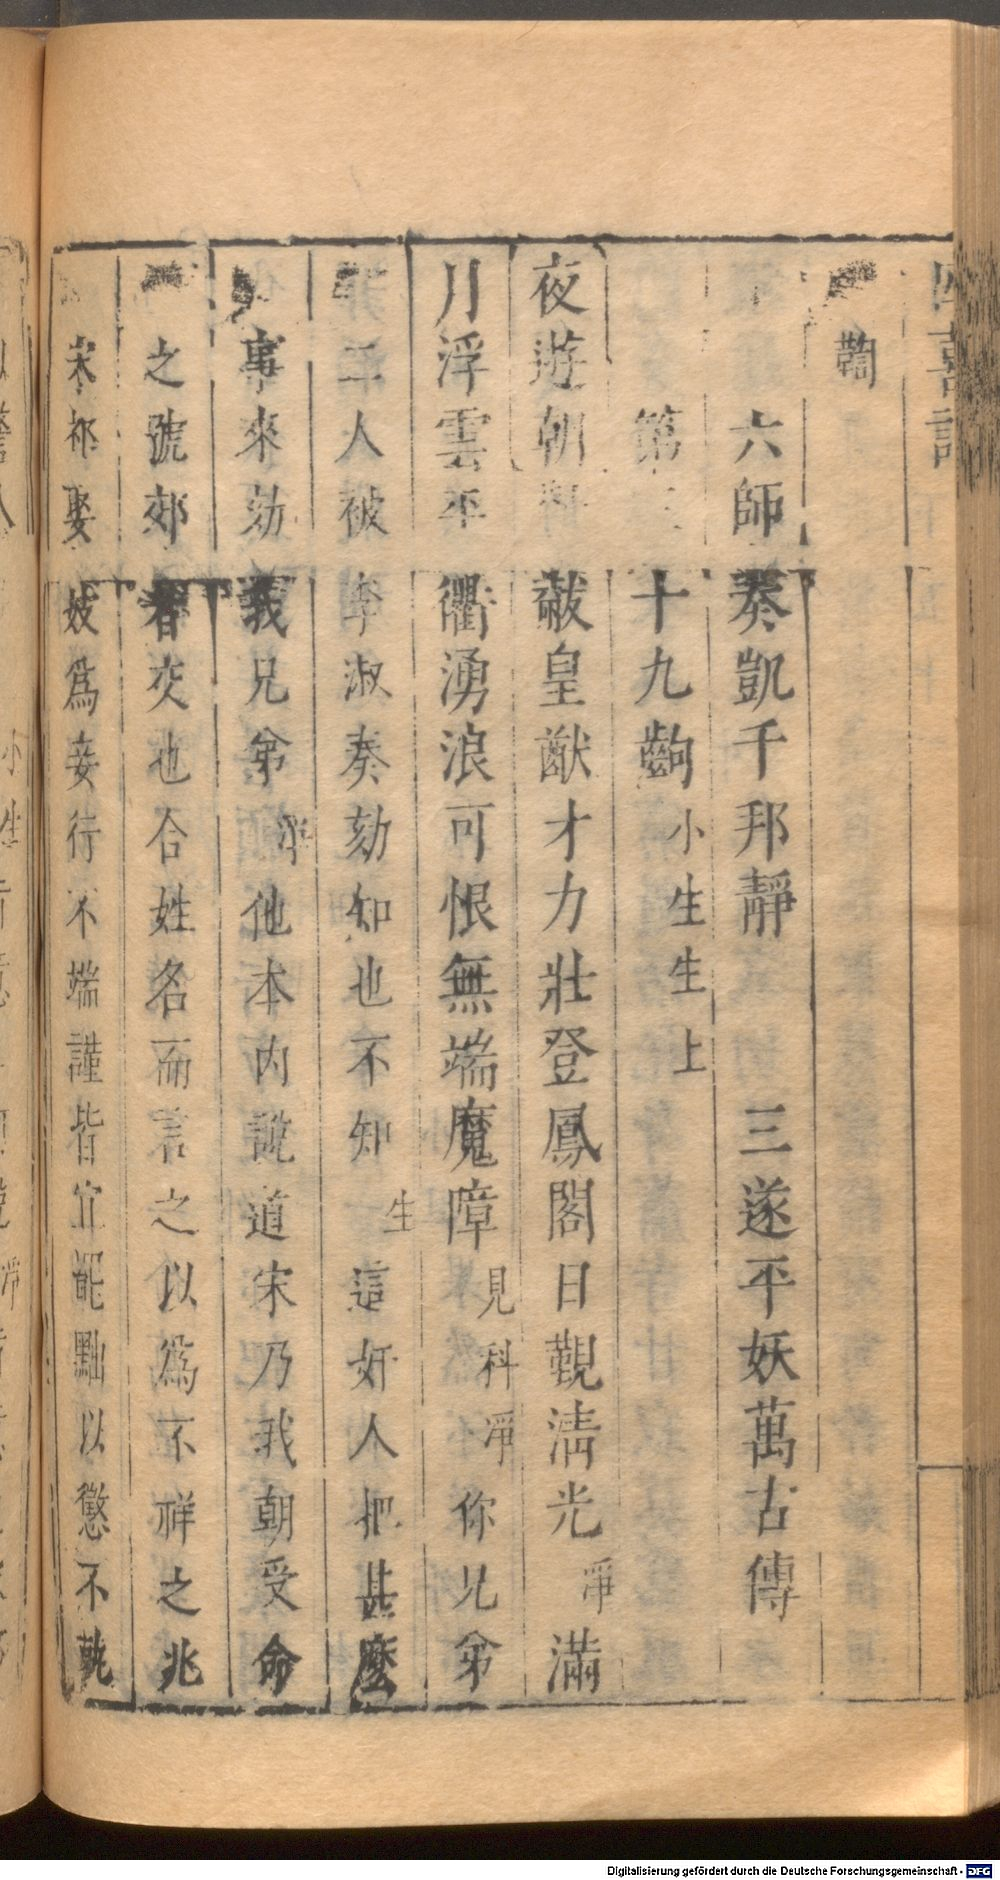 四喜記
鞫
六師奏凱千邦靜 三遂平妖萬古傳
第三十九齣 小生生上
夜遊朝 黻皇猷才力壯登鳳閣日觀淸光 淨 滿
月浮雲平衢湧浪可恨無端魔障 見科 淨 你兄弟
二人被李淑奏劾知也不知 生 這奸人把甚麽
事來劾我兄弟 淨 他本內說道宋乃我朝受命
之號郊者交也合姓名而言之以爲不祥之兆
宋祁娶妓爲妾行不端謹皆宜罷黜以懲不軌
Digitalisierung gefördert durch die Deutsche Forschungsgemeinschaft - DFG